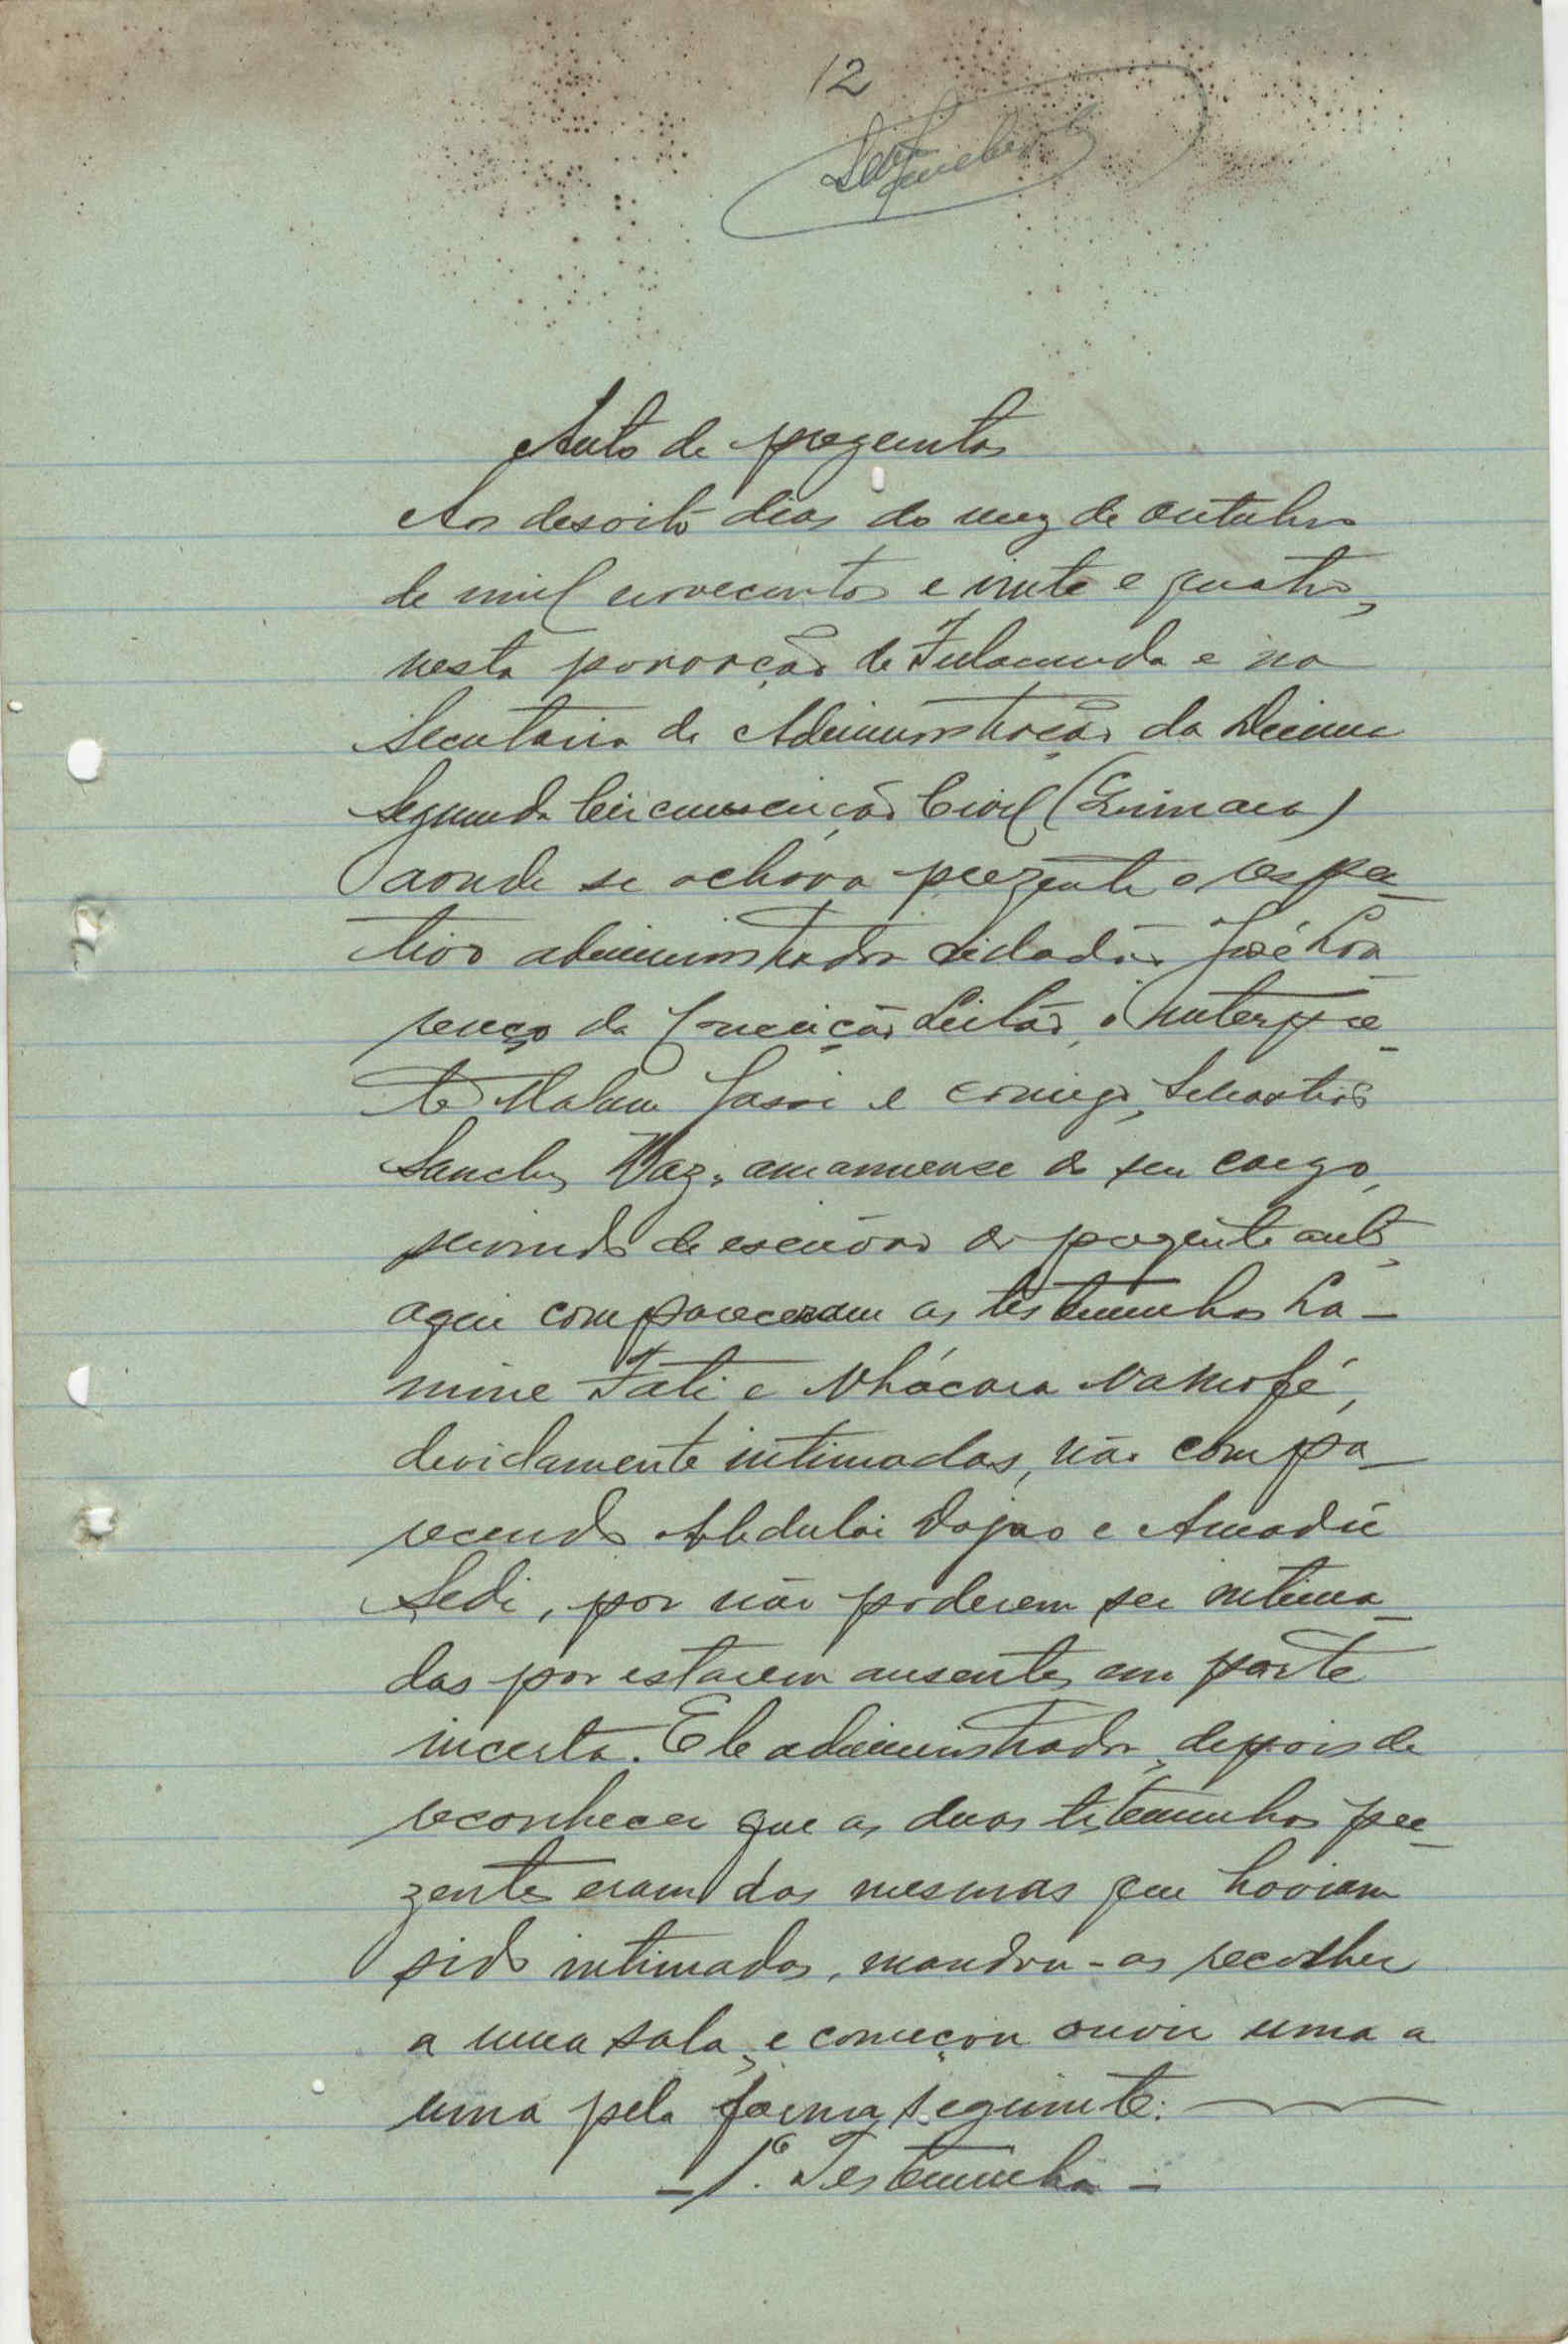 12
Auto de preguntas
Aos desoito dias do mez de Outubro
de mil novecentos e vinte e quatro,
nesta povoação de Fulacunda e na
Secretaria da Administração da Decima
Segunda Circunscrição Civil (Quinara)
aonde se achava prezente o respec-
tivo administrador cidadão José Lou-
renço da Conceição Leitão, o interpre-
te Malam Jassi e comigo, Sebastião
Sanches Vaz, amanuense do seu cargo,
servindo de escrivão do prezente auto,
aqui compareceram as testemunhas La-
mine Fati e Nhácara Namofé,
devidamente intimadas, não compa-
recendo Abdulai Dajao e Amadú
Sedi, por não poderem ser intima-
das por estarem ausentes em parte
incerta. Ele administrador, depois de
reconhecer que as duas testemunhas pre-
zentes eram das mesmas que haviam
sido intimadas, mandou-as recolher
a uma sala, e começou ouvir uma a
uma pela forma seguinte:
- 1ª Testemunha -